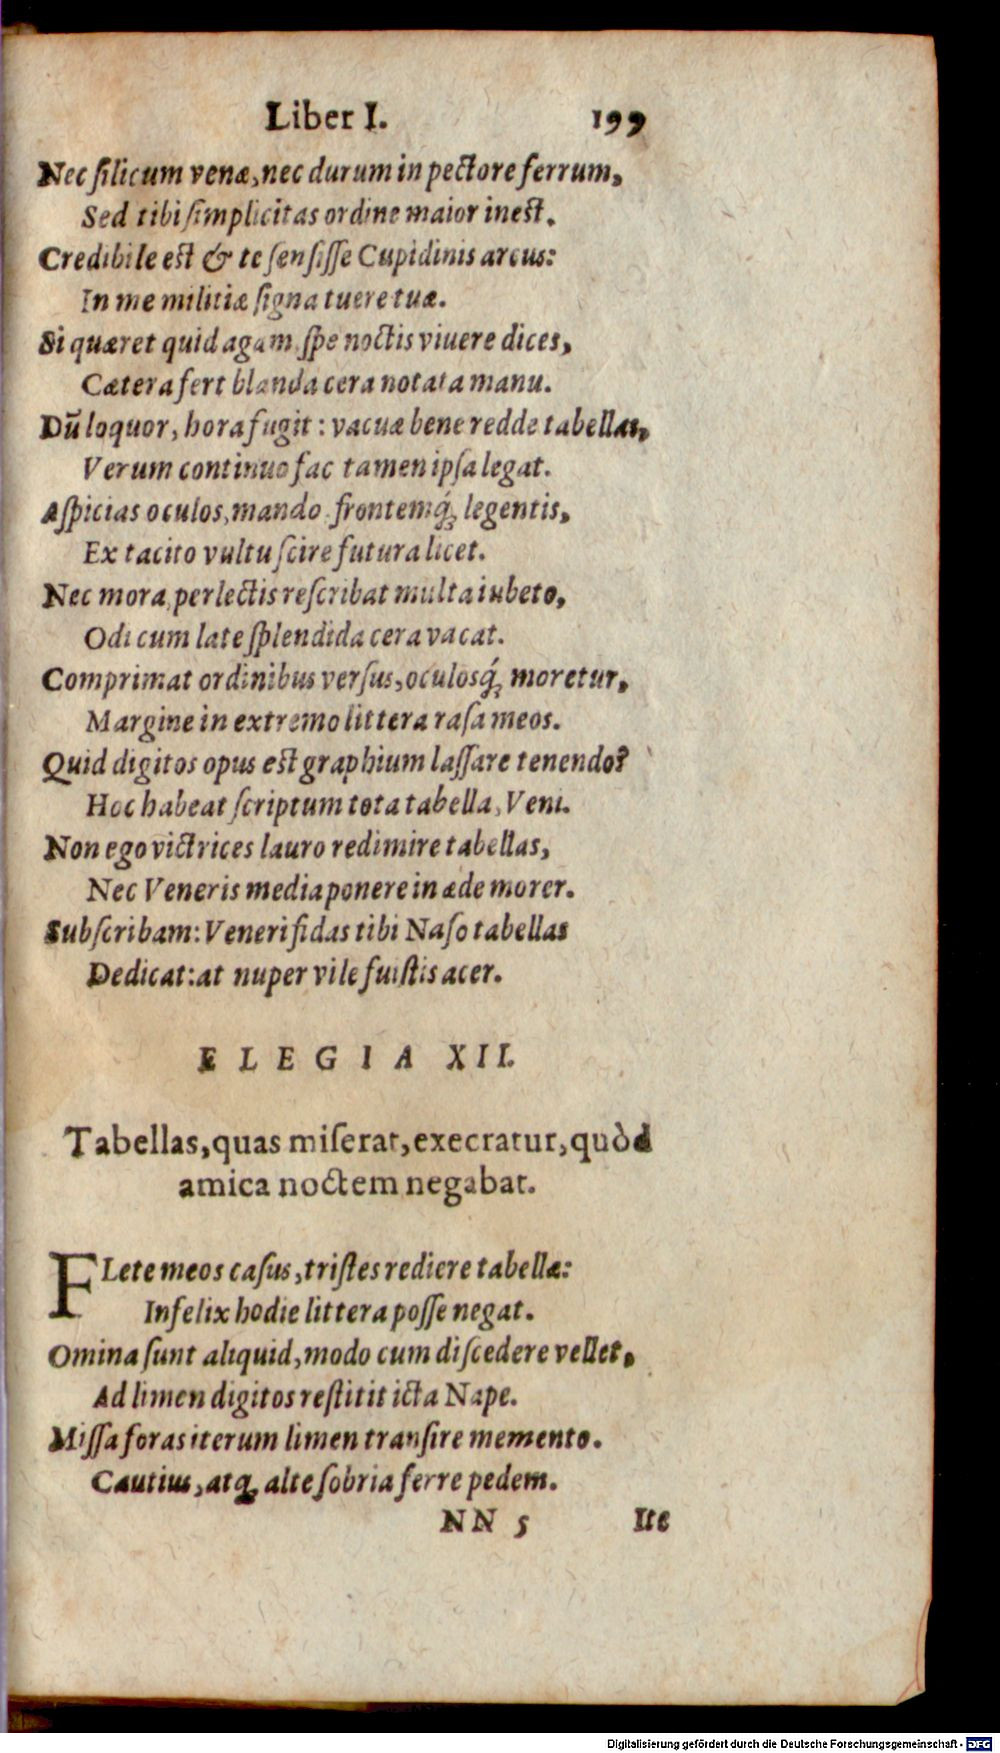 Liber I. 199
Nec ſilicum venæ, nec durum in pectore ferrum,
Sed tibi ſimplicitas ordine maior inest.
Credibile est & te ſenſiſſe Cupidinis arcus:
In me militiæ ſigna tuere tuæ.
Si quæret quid agam ſpe noctis viuere dices,
Cætera fert blanda cera notata manu.
Dū loquor, hora fugit: vacuæ bene redde tabellas,
Verum continuo fac tamen ipſa legat.
Aſpicias oculos, mando frontemq́; legentis,
Ex tacito vultu ſcire futura licet.
Nec mora, perlectis reſcribat multa iubeto,
Odi cum late ſplendida cera vacat.
Comprimat ordinibus verſus, oculosq́; moretur,
Margine in extremo littera raſa meos.
Quid digitos opus est graphium laſſare tenendo?
Hoc habeat ſcriptum tota tabella, Veni.
Non ego victrices lauro redimire tabellas,
Nec Veneris media ponere in æde morer.
Subſcribam: Veneri fidas tibi Naſo tabellas
Dedicat: at nuper vile fuiſtis acer.
ELEGIA XII.
Tabellas, quas miſerat, execratur, quòd
amica noctem negabat.
FLete meos caſus, triſtes rediere tabellæ:
Infelix hodie littera poſſe negat.
Omina ſunt aliquid, modo cum diſcedere vellet,
Ad limen digitos reſtitit icta Nape.
Miſſa foras iterum limen tranſire memento.
Cautius, atq; alte ſobria ferre pedem.
NN 5 Ite
Digitalisierung gefördert durch die Deutsche Forschungsgemeinschaft - DFG